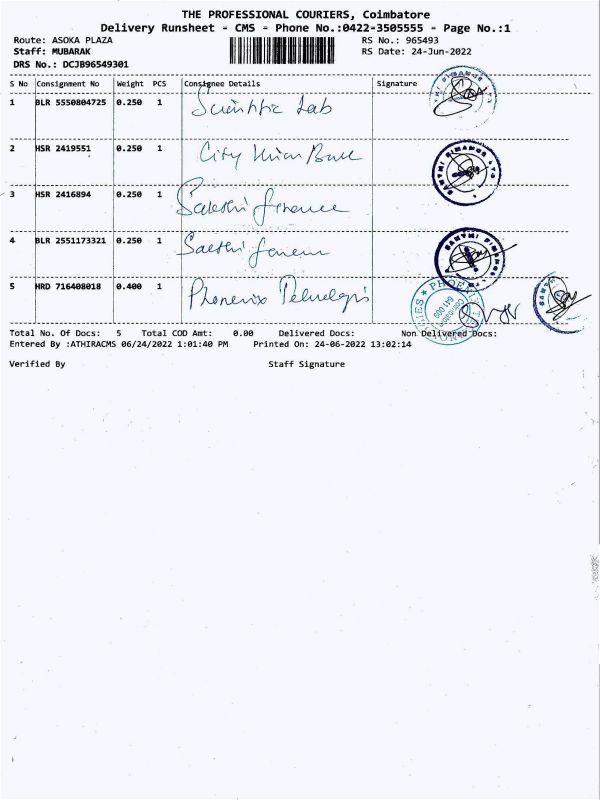 THE PROFESSIONAL COURIERS, Coimbatore
Delivery Runsheet - CMS - Phone No.:0422-3505555 - Page No.:1
Route: ASOKA PLAZA RS No.: 965493
Staff: MUBARAK RS Date: 24-Jun-2022
DRS No.: DCJB96549301
S No Consignment No Weight PCS Consignee Details Signature
1 BLR 5550804725 0.250 1 Scientific Lab
2 HSR 2419551 0.250 1 City Union Bank
3 HSR 2416894 0.250 1 Sakthi finance
4 BLR 2551173321 0.250 1 Sakthi
5 HRD 716408018 0.400 1 Phoenix
Total No. Of Docs: 5 Total COD Amt: 0.00 Delivered Docs: Non Delivered Docs:
Entered By :ATHIRACMS 06/24/2022 1:01:40 PM Printed On: 24-06-2022 13:02:14
Verified By Staff Signature